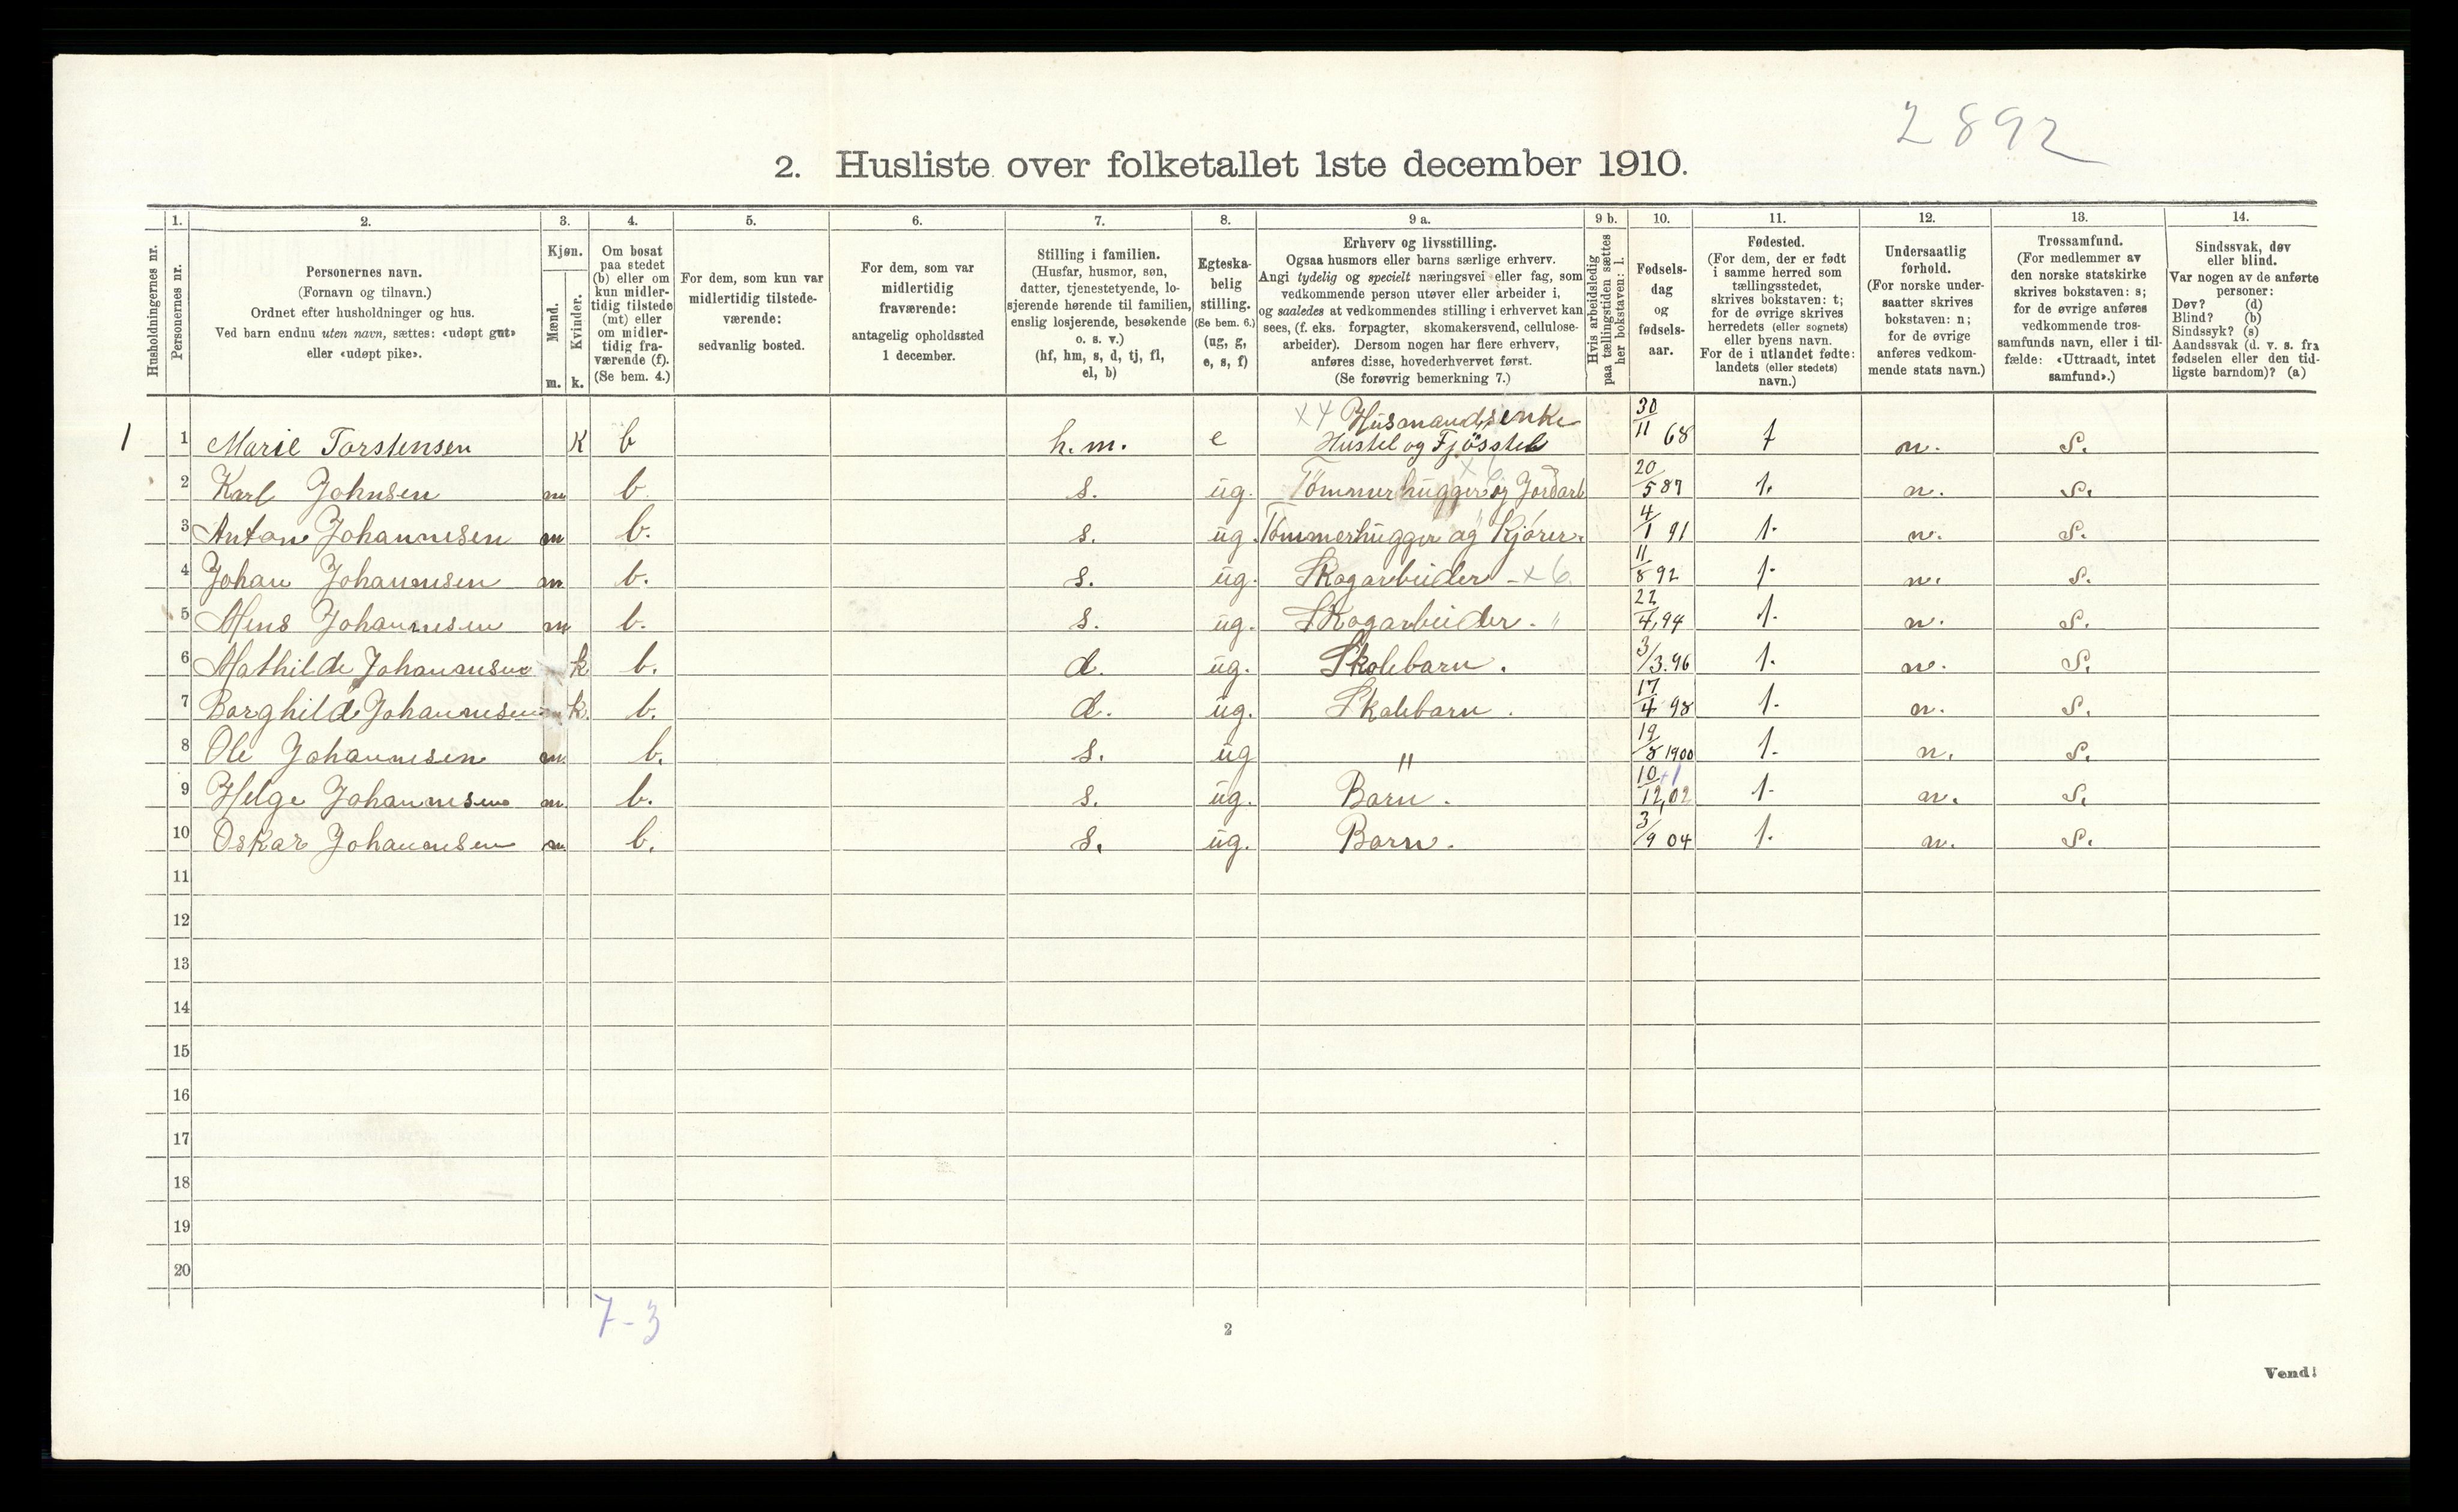 2892
2. Husliste over folketallet 1ste december 1910.
1. 2. 3. 4. 5. 6. 7. 8. 9 a. 9 b. 10. 11. 12. 13. 14.
Husholdningernes nr.
Personernes nr.
Personernes navn.
(Fornavn og tilnavn.)
Ordnet efter husholdninger og hus.
Ved barn endnu uten navn, sættes: «udøpt gut»
eller «udøpt pike».
Kjøn.
Mænd.
m.
Kvinder.
k.
Om bosat
paa stedet
(b) eller om
kun midler-
tidig tilstede
(mt) eller
om midler-
tidig fra-
værende (f).
(Se bem. 4.)
For dem, som kun var
midlertidig tilstede-
værende:
sedvanlig bosted.
For dem, som var
midlertidig
fraværende:
antagelig opholdssted
1 december.
Stilling i familien.
(Husfar, husmor, søn,
datter, tjenestetyende, lo-
sjerende hørende til familien,
enslig losjerende, besøkende
o. s. v.)
(hf, hm, s, d, tj, fl,
el, b)
Egteska-
belig
stilling.
(Se bem. 6.)
(ug, g,
e, s, f)
Erhverv og livsstilling.
Ogsaa husmors eller barns særlige erhverv.
Angi tydelig og specielt næringsvei eller fag, som
vedkommende person utøver eller arbeider i,
og saaledes at vedkommendes stilling i erhvervet kan
sees, (f. eks. forpagter, skomakersvend, cellulose-
arbeider). Dersom nogen har flere erhverv,
anføres disse, hovederhvervet først.
(Se forøvrig bemerkning 7.)
Hvis arbeidsledig
paa tællingstiden sættes
her bokstaven: l.
Fødsels-
dag
og
fødsels-
aar.
Fødested.
(For dem, der er født
i samme herred som
tællingsstedet,
skrives bokstaven: t;
for de øvrige skrives
herredets (eller sognets)
eller byens navn.
For de i utlandet fødte:
landets (eller stedets)
navn.)
Undersaatlig
forhold.
(For norske under-
saatter skrives
bokstaven: n;
for de øvrige
anføres vedkom-
mende stats navn.)
Trossamfund.
(For medlemmer av
den norske statskirke
skrives bokstaven: s;
for de øvrige anføres
vedkommende tros-
samfunds navn, eller i til-
fælde: «Uttraadt, intet
samfund».)
Sindssvak, døv
eller blind.
Var nogen av de anførte
personer:
Døv? (d)
Blind? (b)
Sindssyk? (s)
Aandssvak (d. v. s. fra
fødselen eller den tid-
ligste barndom)? (a)
x4 Husmandsenke
1 1 Marie Torstensen K b h.m. e Hustel og Fjösstel 30/11 68 t n. S.
2 Karl Johnsen m b. s. ug. Tömmerhugger og Jordarb x6 20/5 87 t. n. S.
3 Anton Johannesen m b. s. ug. Tömmerhugger og Kjörer. " 4/1 91 t. n. S.
4 Johan Johannesen m b. s. ug. Skogarbeider - x6 11/8 92 t. n. S.
5 Mens Johannesen m b. s. ug. Skogarbeider. " 22/4, 94 t. n. S.
6 Mathilde Johannsen k b. d. ug. Skolebarn. 3/3. 96 t. n. S.
7 Borghild Johannesen k. b. d. ug. Skolebarn. 17/4 98 t. n. S.
8 Ole Johannesen m. b. s. ug " 19/5 1900 t. n. S.
9 Helge Johannesen m. b. s. ug. Barn. 10/12, 02 +1 t. n. S.
10 Oskar Johannesen m. b. s. ug. Barn. 3/9 04 t. n. S.
11
12
13
14
15
16
17
18
19
20
7-3
2
Vend!